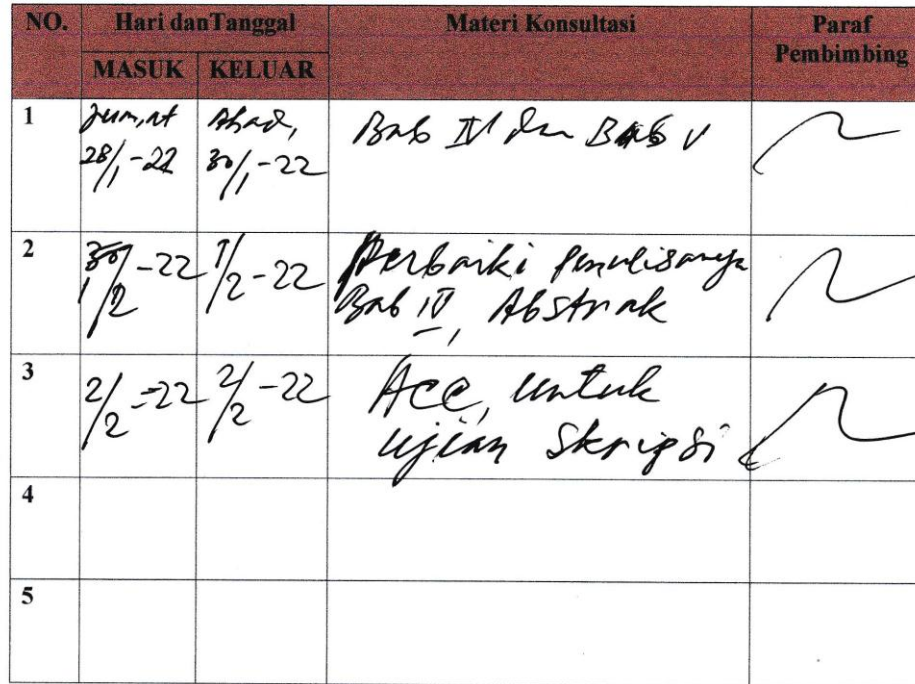 NO. Hari danTanggal Materi Konsultasi Paraf
Pembimbing
MASUK KELUAR
1 Jum,at Ahad, Bab IV dan Bab V
28/1-22 30/1-22
2 1/2-22 1/2-22 Perbaiki penulisannya
Bab IV, Abstrak
3 2/2-22 2/2-22 Acc, untuk
ujian skripsi
4
5